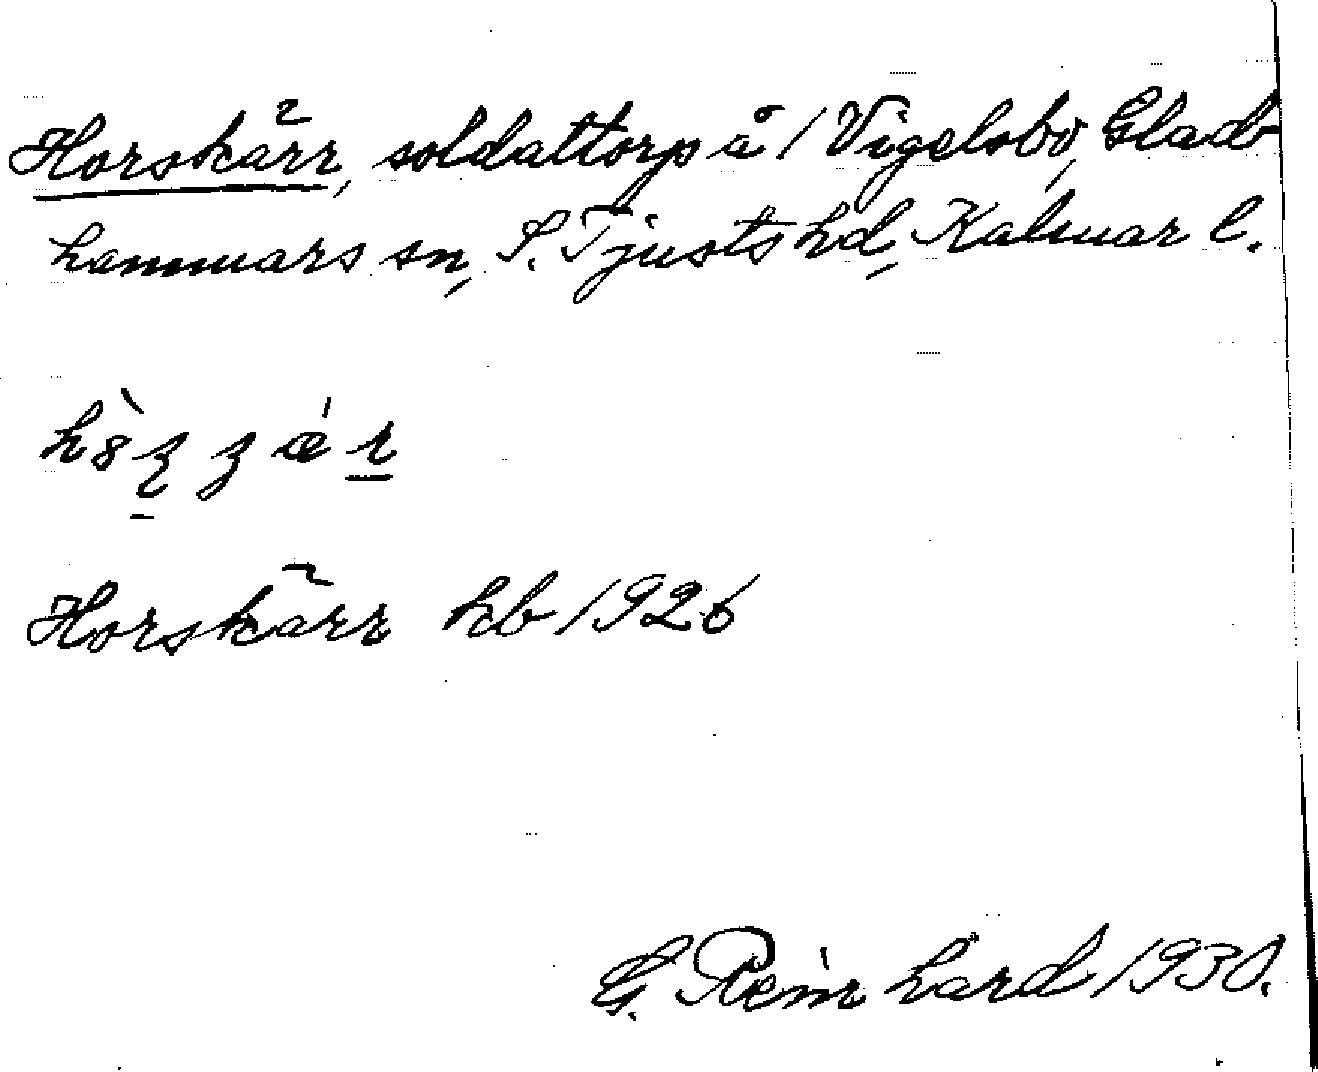 Horskärr, soldattorp å / Vigelsbo, Glad-
hammars sn, S. Tjusts hd, Kalmar l.
Horskärr hb 1926
G. Reinhard 1930.